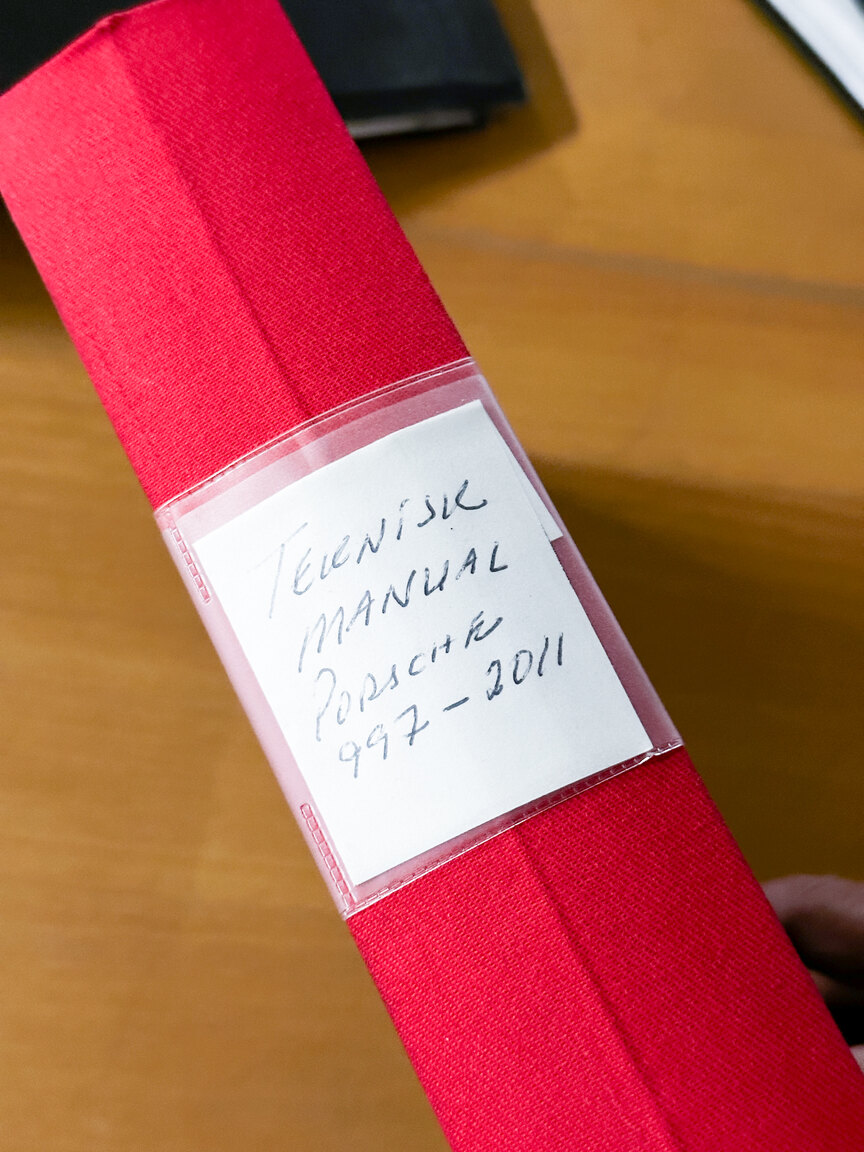 TEKNISK
MANUAL
PORSCHE
997-2011